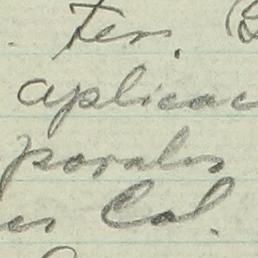 Fer. (
aplicac
porales
es Cal.